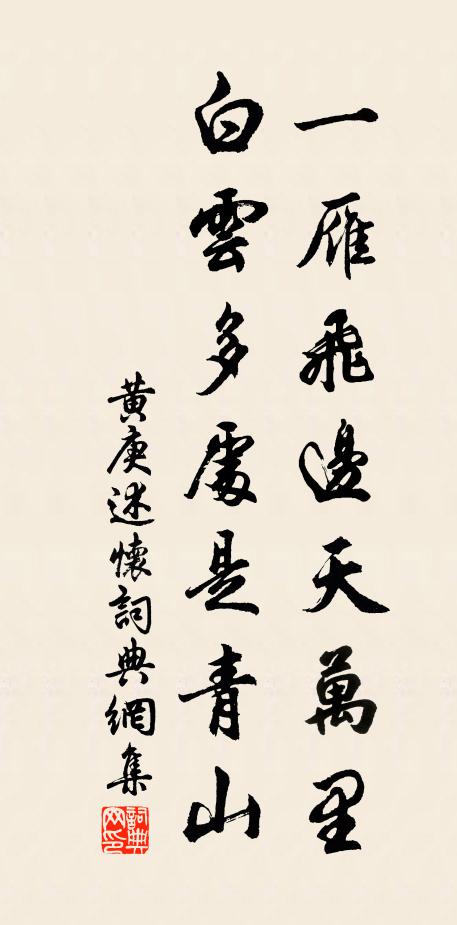 一雁飛邊天萬里
白雲多處是青山
黃庚述懷詞典網集
詞典网印